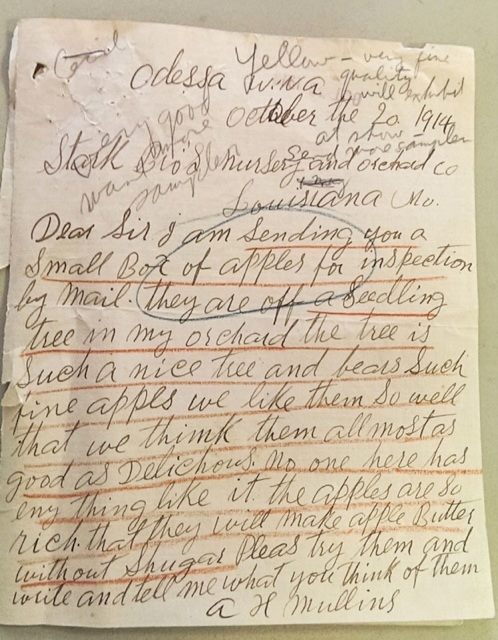 Yellow - very fine
quality
will exhibit
at show -
Send more samples
very good
want more
samples
Odessa W.VA
October the 20 1914
Stark Bro.s nursery and orchard co
Louisiana Mo.
Dear Sir I am Sending you a
Small Box of apples for inspection
by Mail. they are off a Seedling
tree in my orchard the tree is
Such a nice tree and bears Such
fine apples we like them So well
that we thimk them allmost as
good as Delichous. no one here has
eny thing like it. the apples are so
rich. that they will make apple Butter
without Shugar Pleas try them and
write and tell me what you think of them
A H Mullins